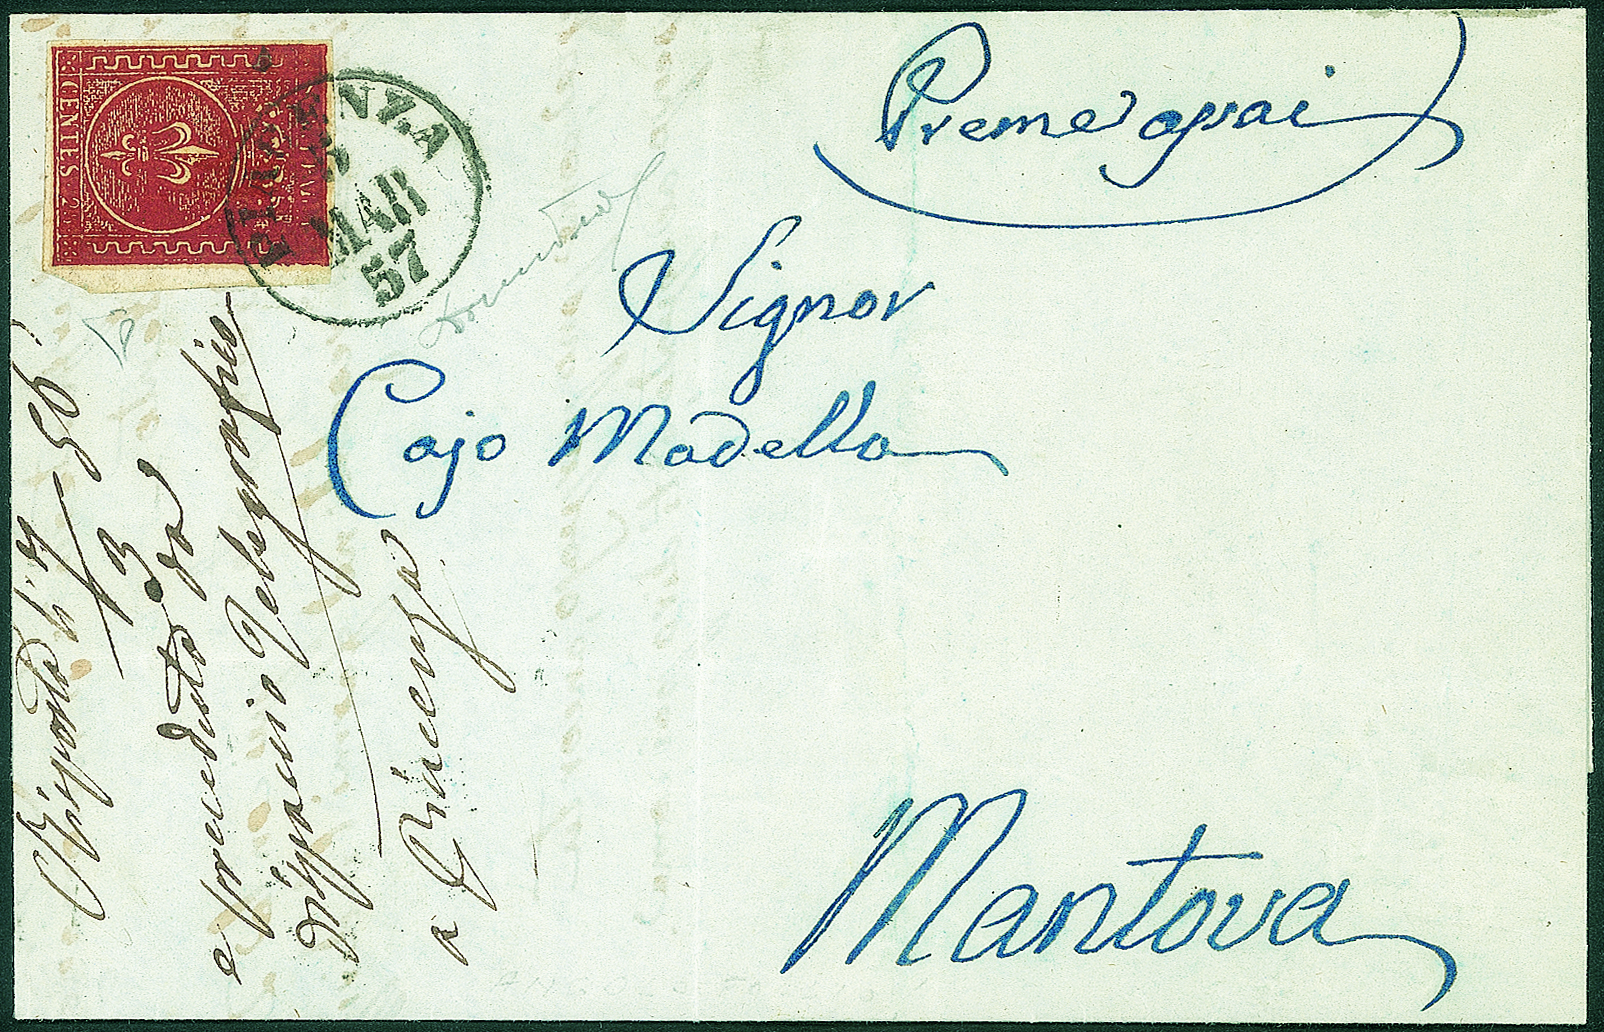 CENTES 25
PIACENZA
5
MAR
57
Preme assai
Signor
Cajo Madella
Mantova
Risposta li 7
3
e preceduta da
dispaccio Telegrafico
a Piacenza